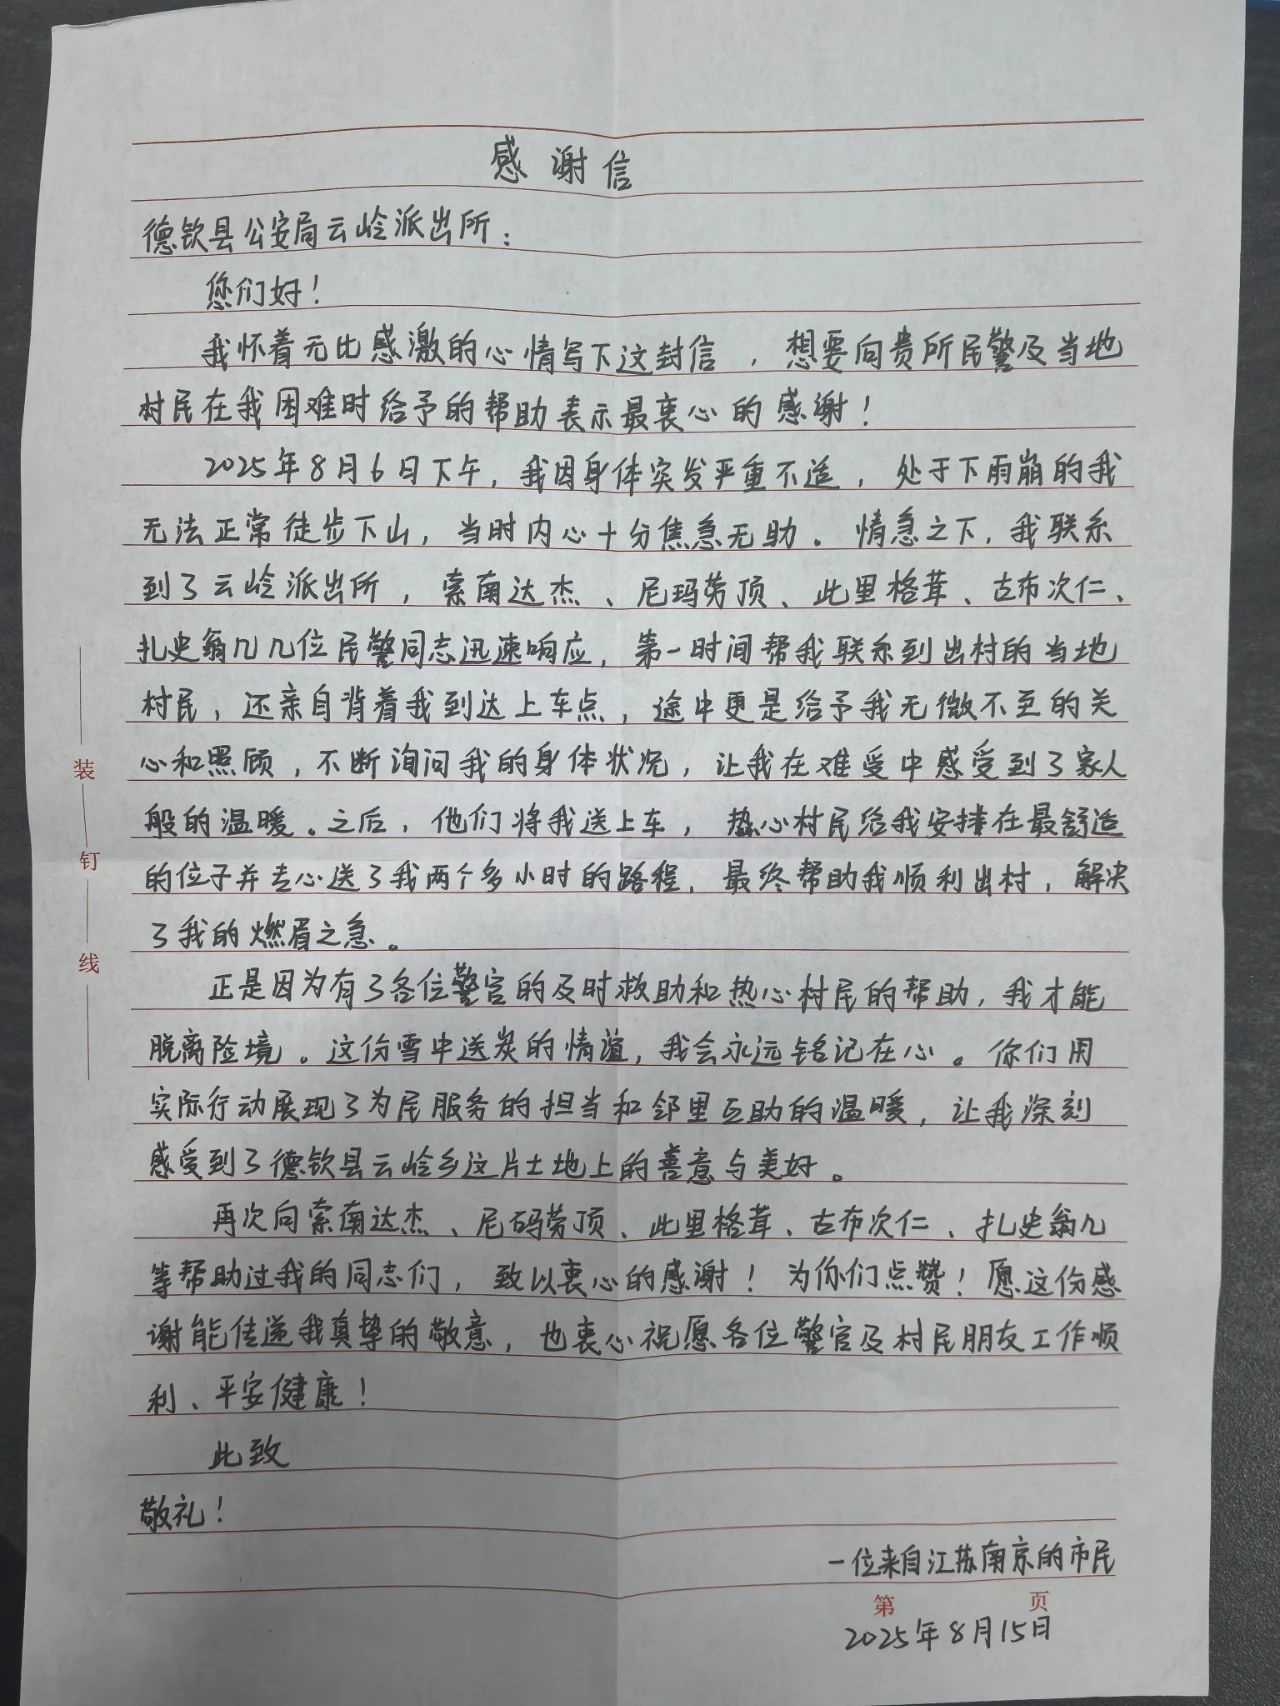 感谢信
德钦县公安局云岭派出所：
您们好！
我怀着无比感激的心情写下这封信，想要向贵所民警及当地
村民在我困难时给予的帮助表示最衷心的感谢！
2025年8月6日下午，我因身体突发严重不适，处于下雨崩的我
无法正常徒步下山，当时内心十分焦急无助。情急之下，我联系
到了云岭派出所，索南达杰、尼玛劳顶、此里格茸、古布次仁、
扎史翁几几位民警同志迅速响应，第一时间帮我联系到出村的当地
村民，还亲自背着我到达上车点，途中更是给予我无微不至的关
心和照顾，不断询问我的身体状况，让我在难受中感受到了家人
般的温暖。之后，他们将我送上车，热心村民给我安排在最舒适
的位子并专心送了我两个多小时的路程，最终帮助我顺利出村，解决
了我的燃眉之急。
正是因为有了各位警官的及时救助和热心村民的帮助，我才能
脱离险境。这份雪中送炭的情谊，我会永远铭记在心。你们用
实际行动展现了为民服务的担当和邻里互助的温暖，让我深刻
感受到了德钦县云岭乡这片土地上的善意与美好。
再次向索南达杰、尼码劳顶、此里格茸、古布次仁、扎史翁几
等帮助过我的同志们，致以衷心的感谢！为你们点赞！愿这份感
谢能传递我真挚的敬意，也衷心祝愿各位警官及村民朋友工作顺
利、平安健康！
此致
敬礼！
一位来自江苏南京的市民
第 页
2025年8月15日
装
钉
线